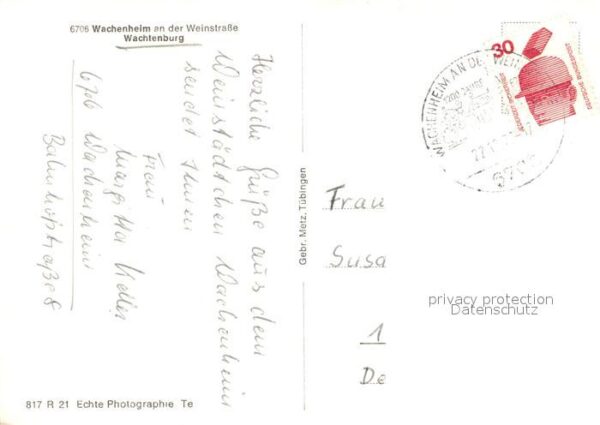 6706 Wachenheim an der Weinstraße
Wachtenburg
Herzliche Grüße aus dem
Weinstädtchen Wachenheim
sendet Ihnen
Frau
Margitta
6706 Wachenheim
Bahnhofstraße 8
817 R 21 Echte Photographie Te
Gebr. Metz, Tübingen
30
DEUTSCHE BUNDESPOST
WACHENHEIM AN DER WEIN
6706
Frau
Susa
1
De
privacy protection
Datenschutz